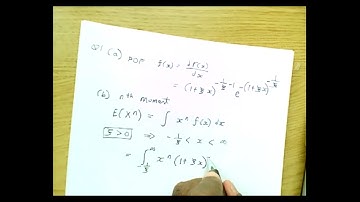 Q1 (a) PDF f(x) = dF(x)/dx
= (1+ξx)^{-1/ξ -1} e^{-(1+ξx)^{-1/ξ}}
(b) nth moment
E(X^n) = ∫ x^n f(x) dx
ξ>0 ⇒ -1/ξ < x < ∞
= ∫_{-1/ξ}^{∞} x^n (1+ξx)^-